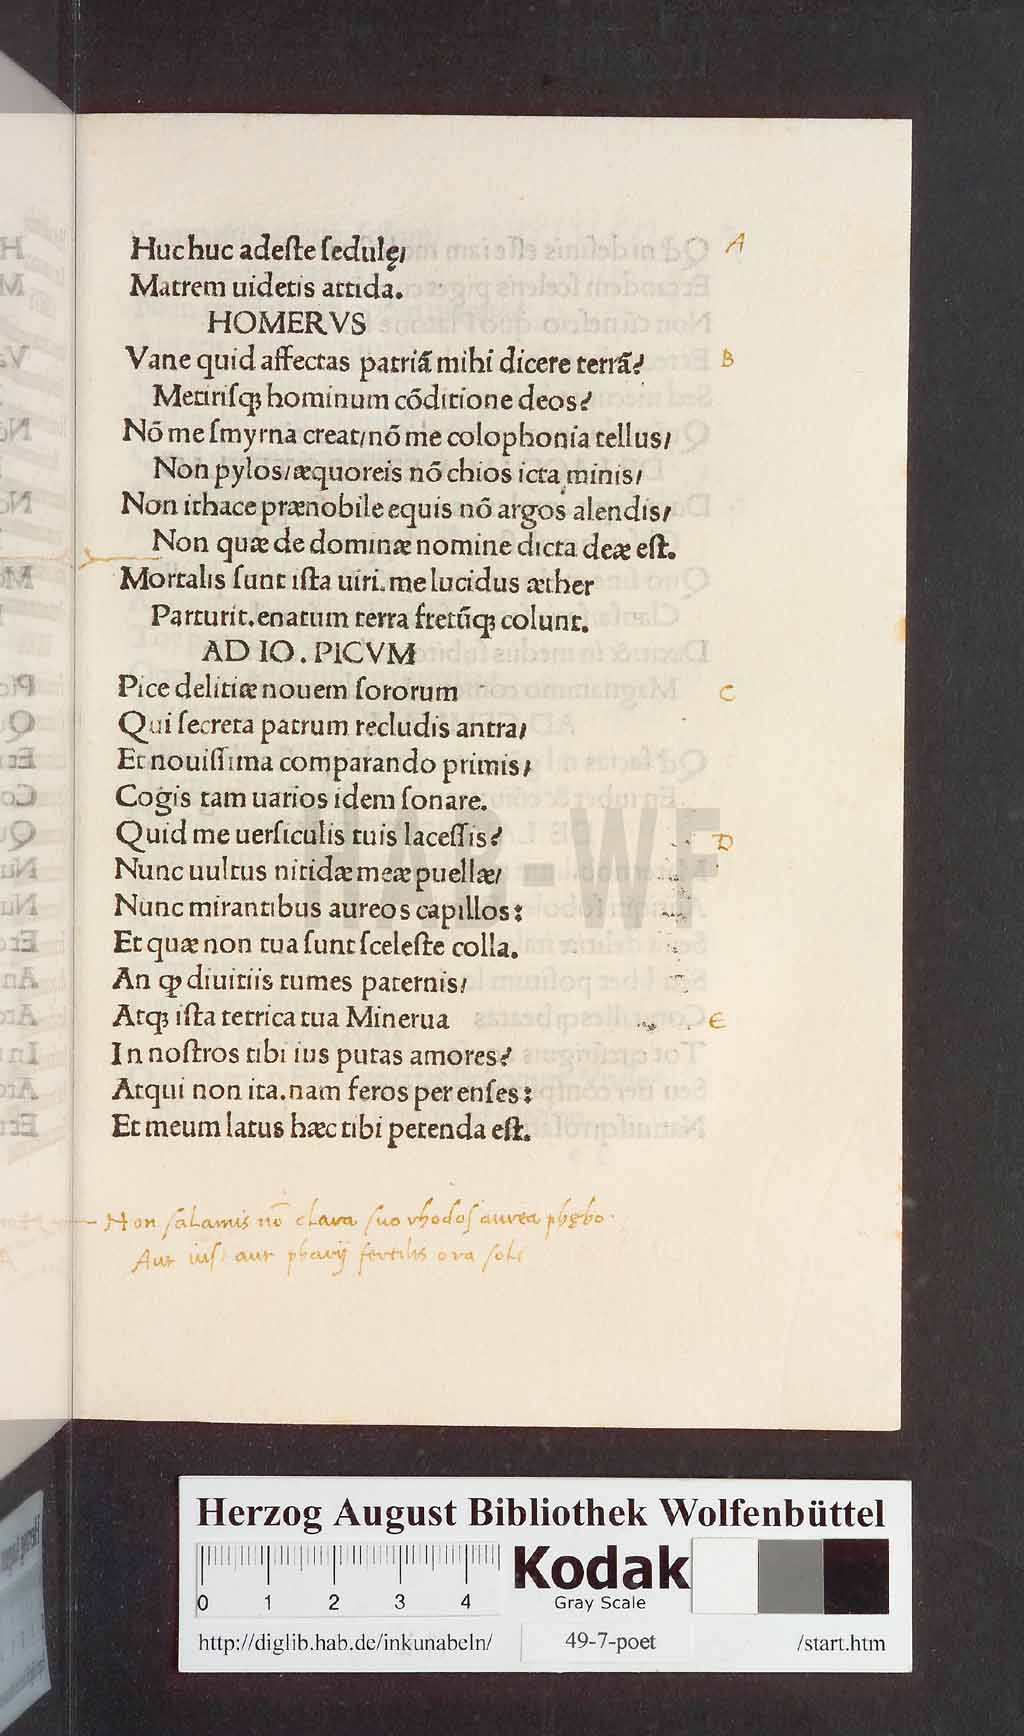 Huc huc adeſte ſedulę/
Matrem uidetis attida.
HOMERVS
Vane quid affectas patriā mihi dicere terrā?
Metiriſqꝫ hominum cōditione deos?
Nō me ſmyrna creat/nō me colophonia tellus/
Non pylos/æquoreis nō chios icta minis/
Non ithace prænobile equis nō argos alendis/
Non quæ de dominæ nomine dicta deæ eſt.
Mortalis ſunt iſta uiri.me lucidus æther
Parturit.enatum terra fretūqꝫ colunt.
AD IO. PICVM
Pice delitiæ nouem ſororum
Qui ſecreta patrum recludis antra/
Et nouiſſima comparando primis/
Cogis tam uarios idem ſonare.
Quid me uerſiculis tuis laceſſis?
Nunc uultus nitidæ meæ puellæ/
Nunc mirantibus aureos capillos:
Et quæ non tua ſunt ſceleſte colla.
An ꝙ diuitiis tumes paternis/
Atqꝫ iſta tetrica tua Minerua
In noſtros tibi ius putas amores?
Atqui non ita.nam feros per enſes:
Et meum latus hæc tibi petenda eſt.
A
B
C
D
E
Non ſalamis nō clara ſuo rhodoſ aurea phębo.
Aut iuſ aut pharij fertilis ora ſoli
HAB-WF
Herzog August Bibliothek Wolfenbüttel
0 1 2 3 4
Kodak
Gray Scale
http://diglib.hab.de/inkunabeln/ 49-7-poet /start.htm